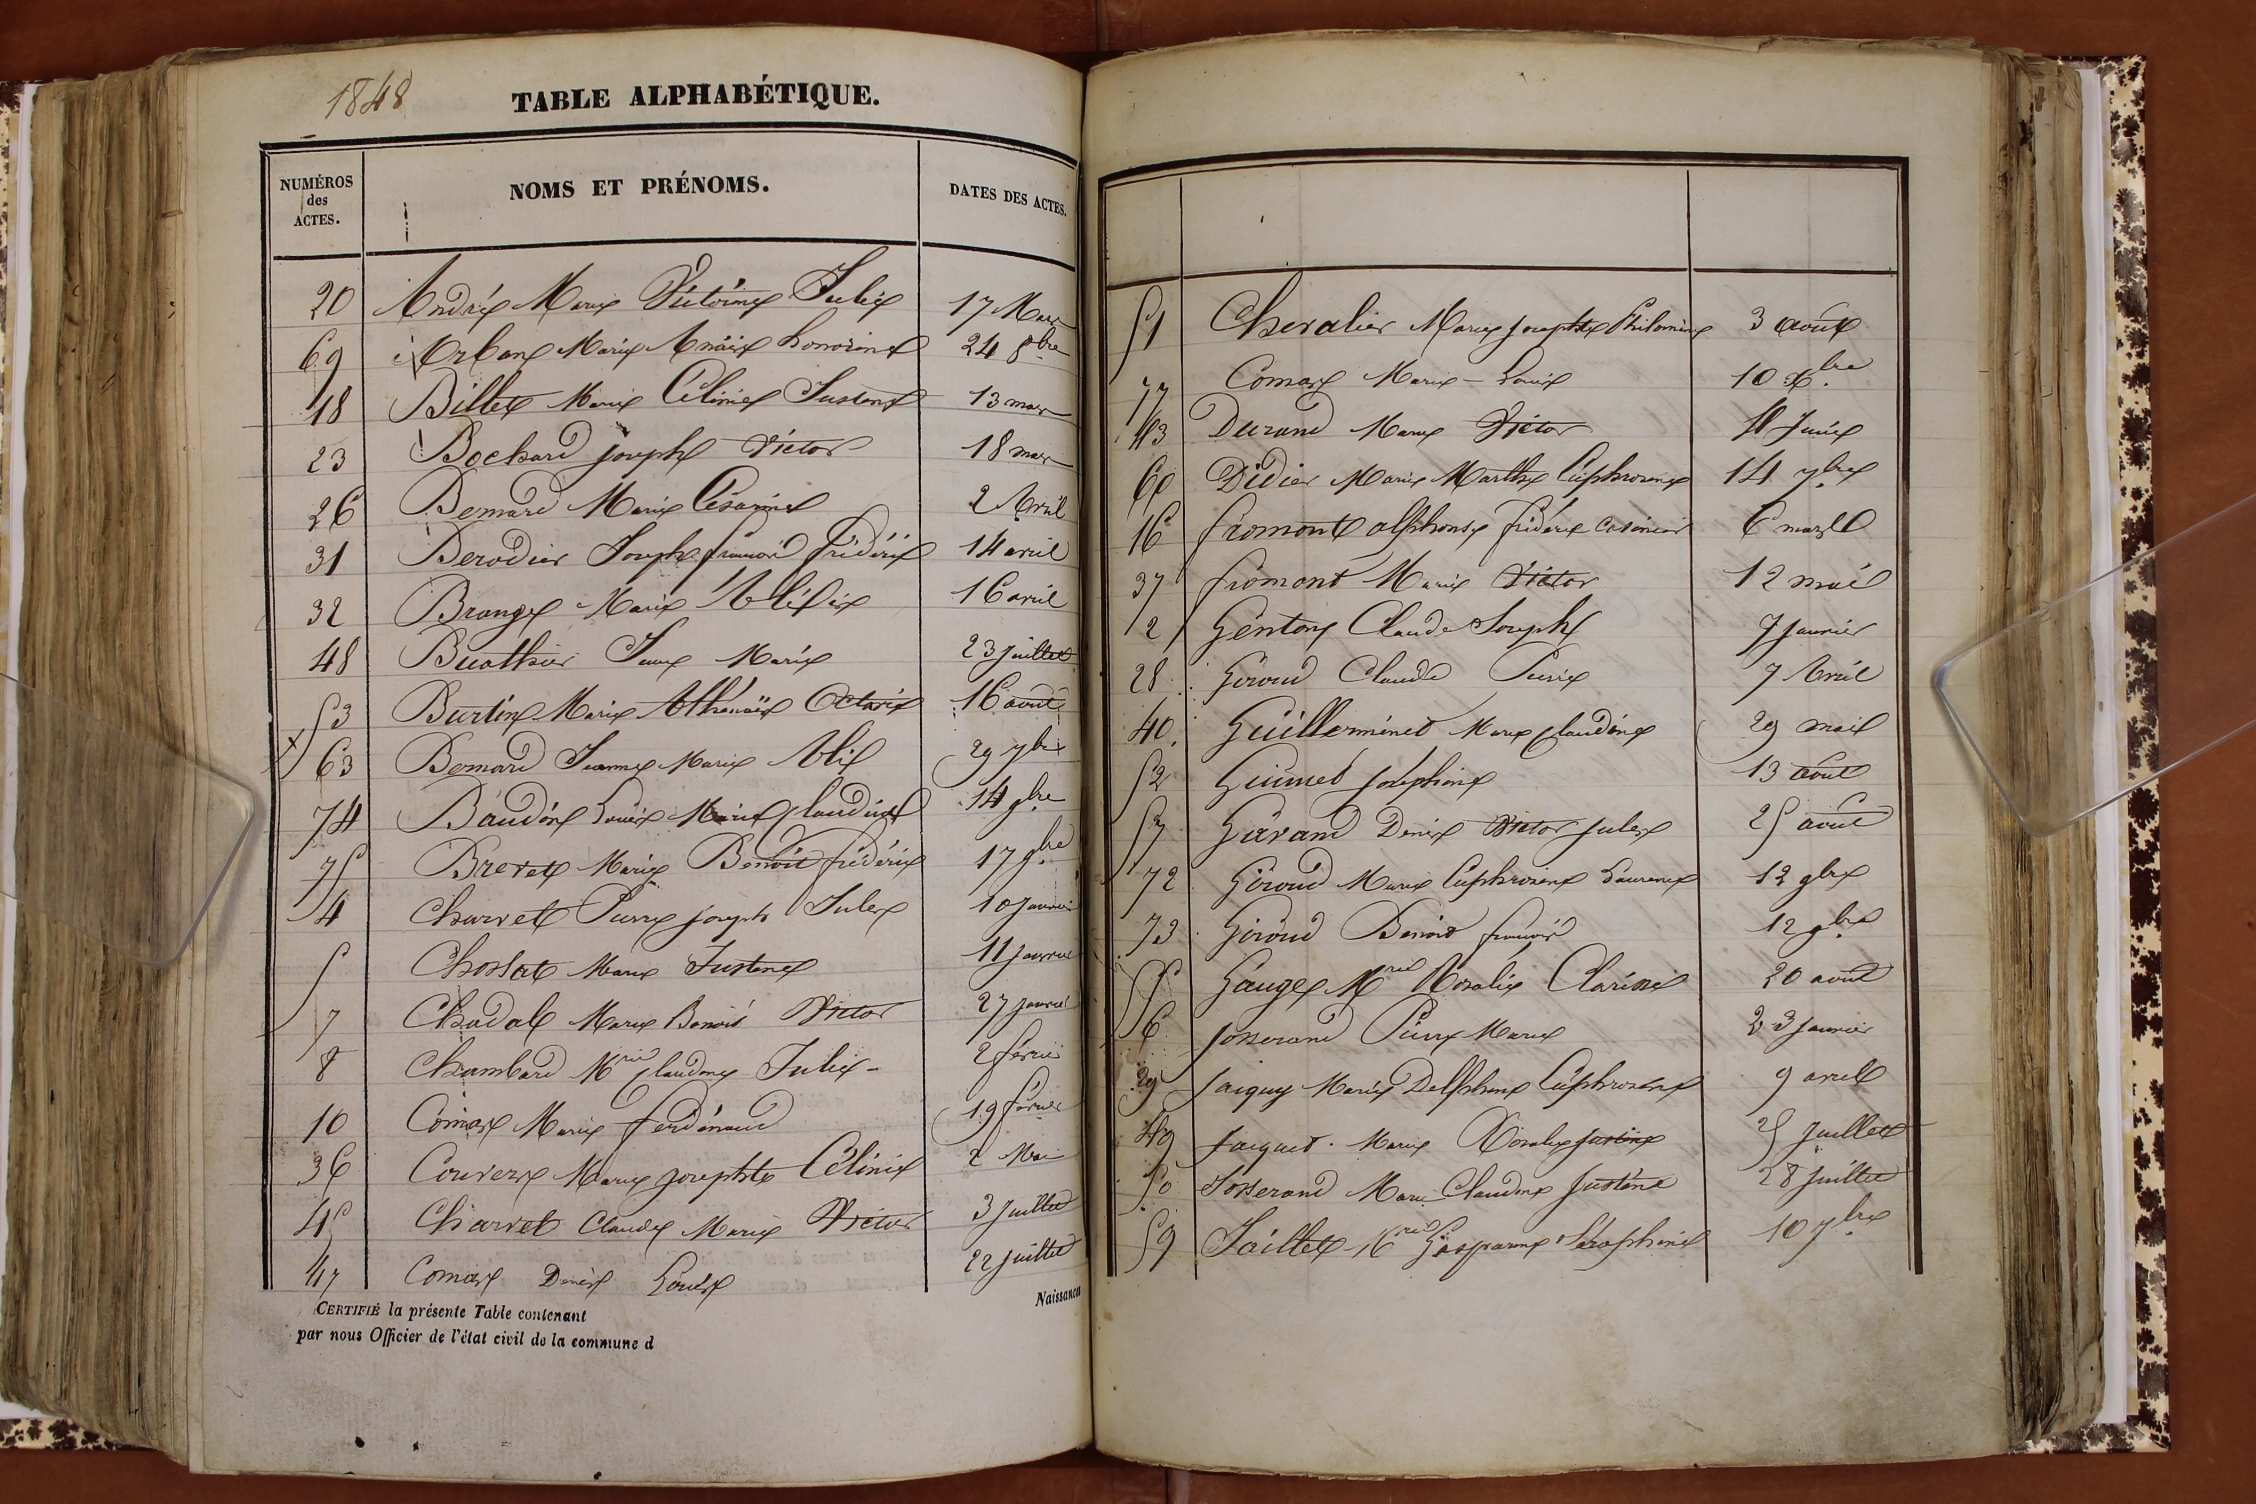 1848
TABLE ALPHABÉTIQUE.
NUMÉROS des ACTES. NOMS ET PRÉNOMS. DATES DES ACTES.
20 André Marie Victorine Julie 17 Mars
69 Arban Marie Anaïs honorine 24 8bre
18 Billet Marie Céline Justine 13 mars
23 Bochard joseph Victor 18 mars
26 Bernard Marie Césarine 2 Avril
31 Berodier Joseph françois frédéric 14 avril
32 Brange Marie Alexis 16 avril
48 Buathier Marie 23 juillet
53 Burlin Marie Athénaïs Octavie 16 août
63 Bernard Jeanne Marie Alix 29 7bre
74 Baudin Louise Marie Claudine 14 9bre
75 Brevet Marie Benoît frédéric 17 9bre
4 Charvet Pierre joseph Jules 10 janvier
5 Chossat Marie Justine 11 janvier
7 Chadal Marie Benoit Victor 27 janvier
8 Chambard Mrie Claudine Julie 2 février
10 Comas Marie ferdinand 19 février
36 Couvers Marie josephte Célinie 2 Mai
45 Charvet Claude Marie Victor 3 juillet
47 Comas Denis Louis 22 juillet
CERTIFIÉ la présente Table contenant Naissances
par nous Officier de l'état civil de la commune d
51 Chevalier Marie josephte Philomène 3 août
77 Comas Marie - Louis 10 Xbre
43 Durand Marie Victor 11 Juin
60 Didier Marie Marthe Euphrosine 14 7bre
16 fromont alphonse frédéric casimir 6 mars
37 fromont Marie Victor 12 mai
2 Genton Claude Joseph 7 janvier
28 Giroud Claude Pierre 7 Avril
40 Guillerminet Marie Claudine 29 mai
52 Guimet joséphine 13 août
57 Guérand Denis Victor jules 25 août
72 Giroud Marie Euphrosine Laurence 12 9bre
73 Giroud Benoit françois 12 9bre
55 Gauge Mrie Rosalie Clarisse 20 août
6 josserand Pierre Marie 23 janvier
29 jacquy Marie Delphine Euphrosine 9 avril
49 jacquet Marie Rosalie justine 25 juillet
50 Josserand Marie Claudine Justine 28 juillet
59 Jaillet Mrie Gasparine Séraphine 10 7bre